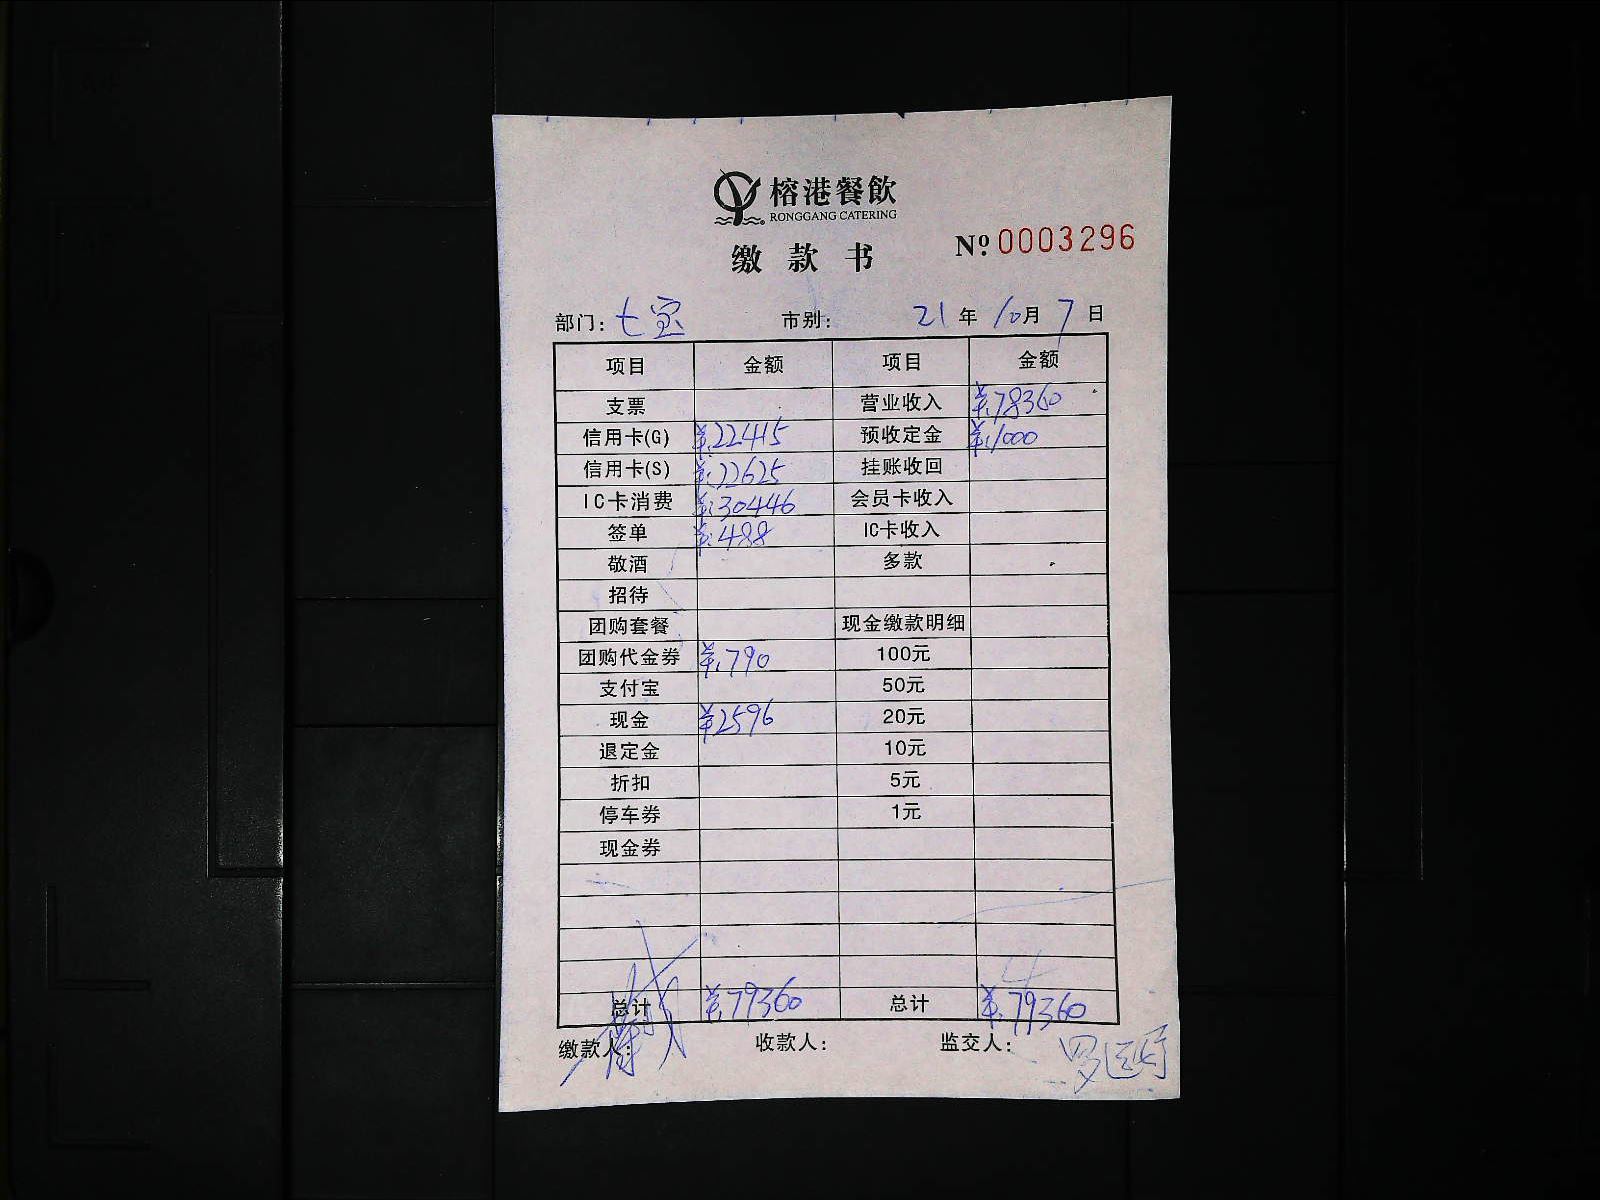 榕港餐飲
RONGGANG CATERING
缴款书
№ 0003296
部门: 七宝 市别: 21年10月7日
项目 金额 项目 金额
支票 营业收入 ¥:78360
信用卡(G) ¥:22415 预收定金 ¥:1000
信用卡(S) ¥:22625 挂账收回
IC卡消费 ¥:30446 会员卡收入
签单 ¥:488 IC卡收入
敬酒 多款
招待
团购套餐 现金缴款明细
团购代金券 ¥:790 100元
支付宝 50元
现金 ¥2596 20元
退定金 10元
折扣 5元
停车券 1元
现金券
总计 ¥:79360 总计 ¥:79360
缴款人: 收款人: 监交人: